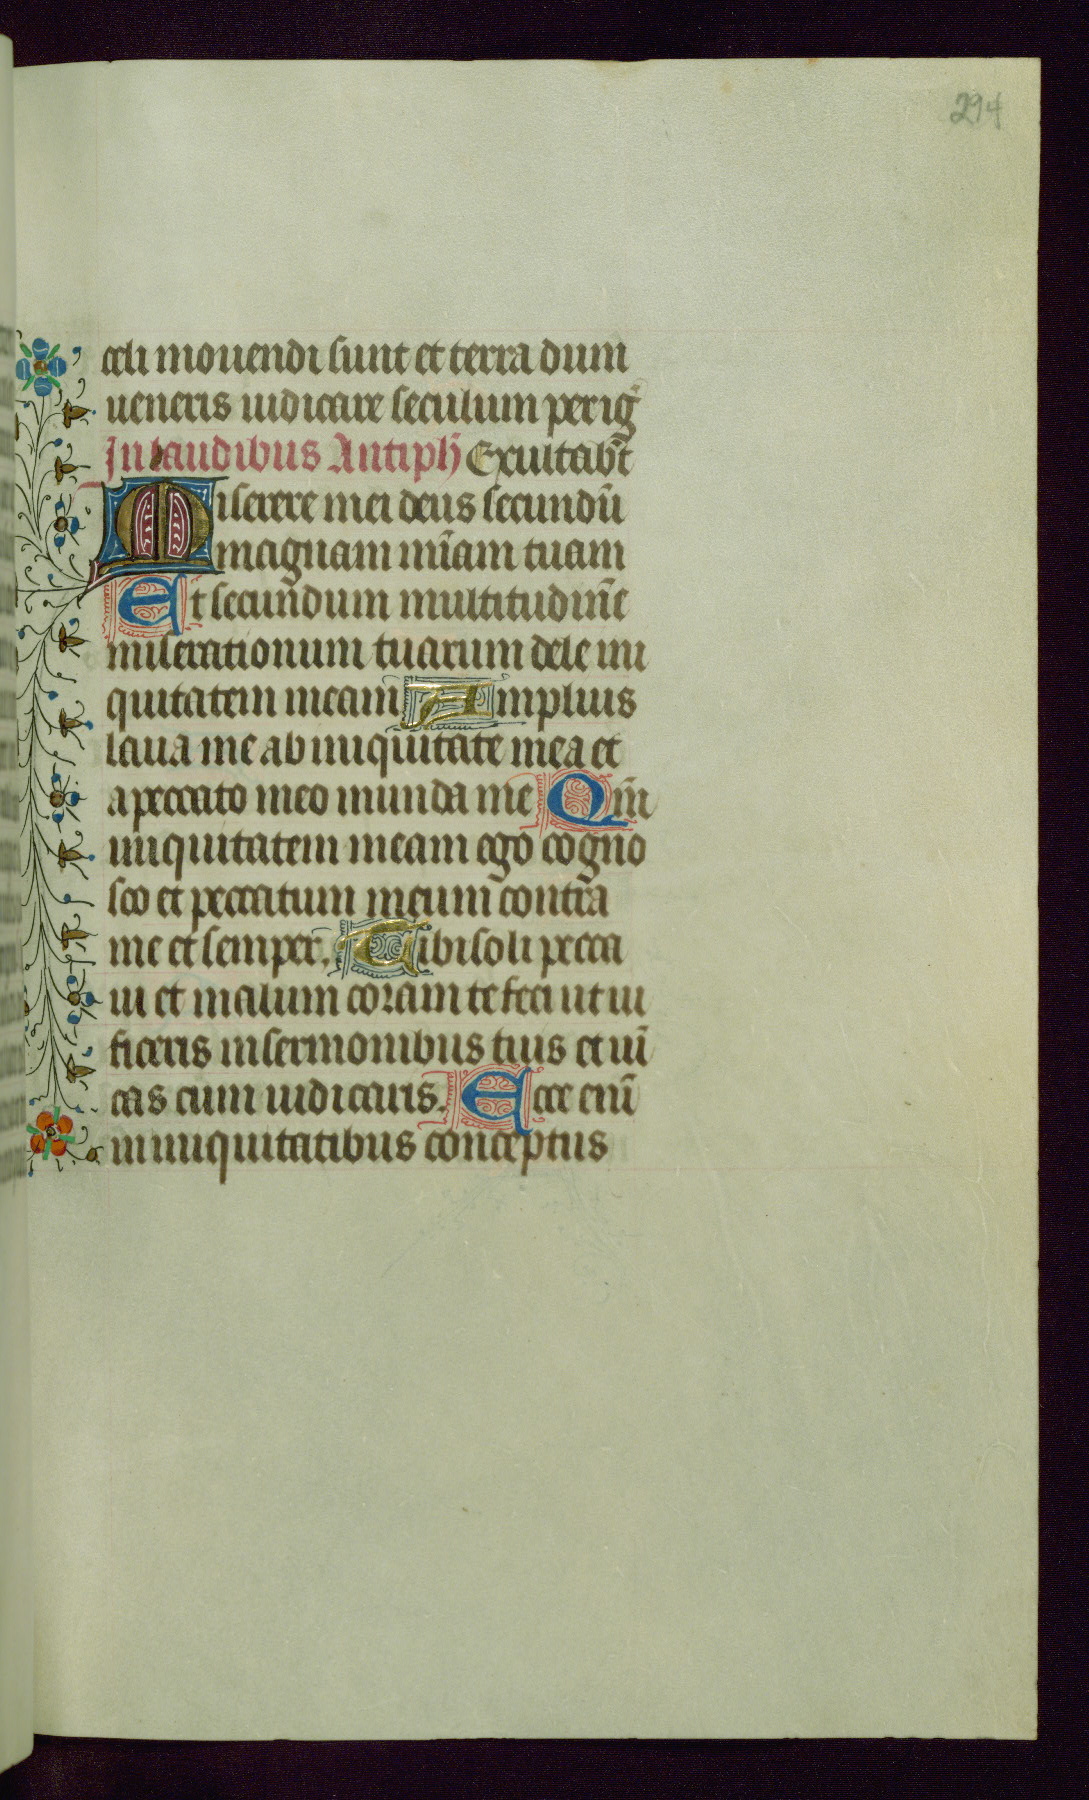 294
celi mouendi sunt et terra dum
ueneris iudicare seculum per ig̃
In laudibus Antiph̃ Exultab̃t
Miserere mei deus secundũ
magnam mĩam tuam
Et secundum multitudinẽ
miserationum tuarum dele ini
quitatem meam Amplius
laua me ab iniquitate mea et
a peccato meo munda me Qm̃
iniquitatem meam ego cogno
sco et peccatum meum contra
me et semper. Tibi soli pecca
ui et malum coram te feci ut iu
ficeris in sermonibus tuis et uĩ
cas cum iudicaris. Ecce enĩ
in iniquitatibus conceptus